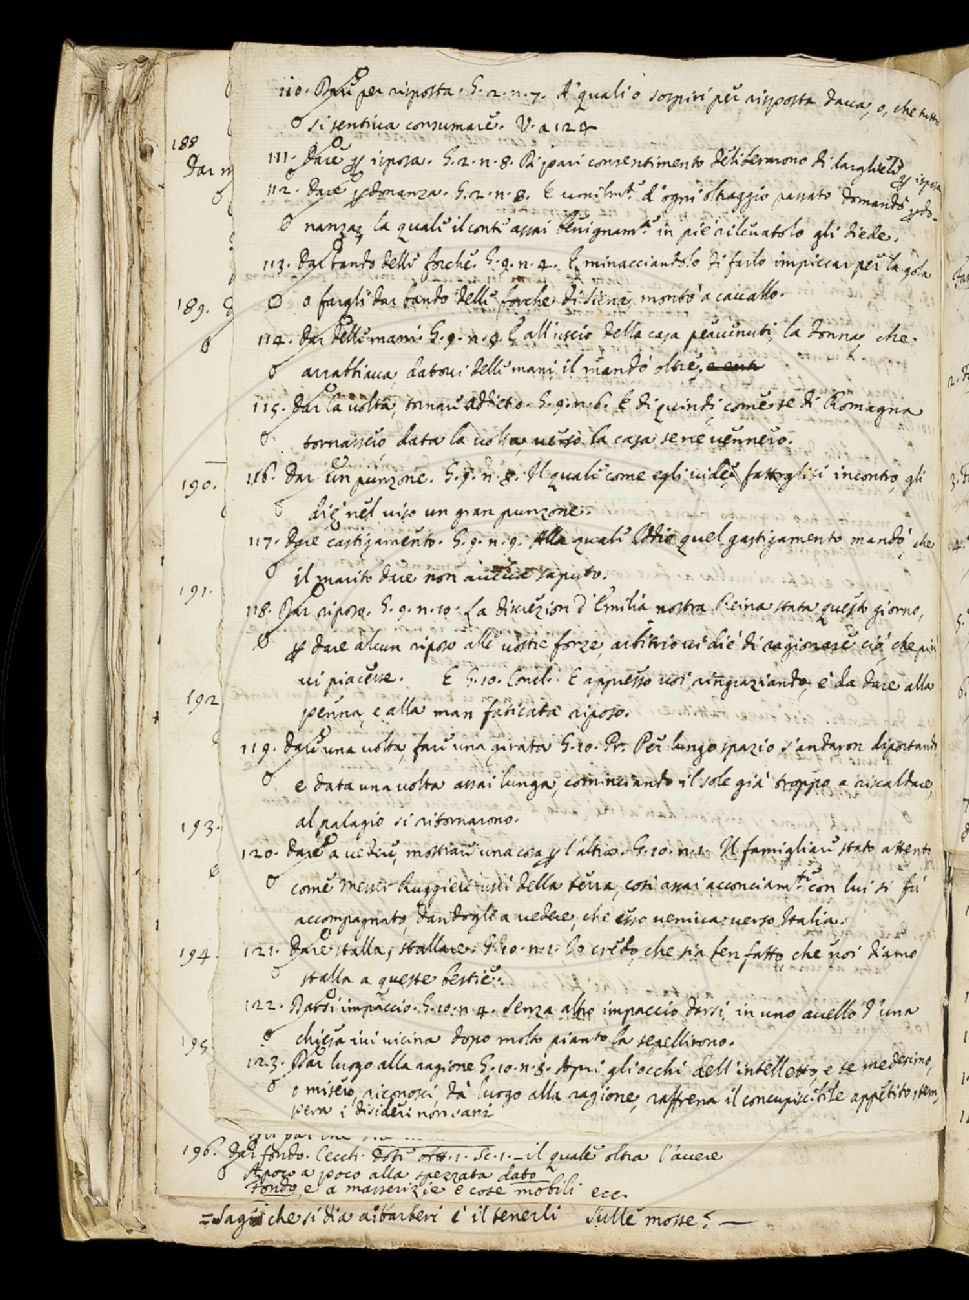 110. Dare per risposta. G. 2. n. 7. A' quali o sospiri per risposta dava, o, che tutta
si sentiva consumare. V. a 124
188
Dar
111. Dare ꝑ isposa. G. 2. n. 8. Di pari consentimento deliberarono di dargliele ꝑ isposa
112. Dare ꝑdonanza. G. 2. n. 8. E umilmte. d'ogni oltraggio passato domandò ꝑdo-
nanza, la quale il conte assai benignamte. in piè rilevatolo gli diede.
113. Dar bando delle forche G. 9. n. 4. E minacciandolo di farlo impiccar per la gola
189.
o fargli dar bando delle forche di Siena, montò a cavallo.
114. Dar delle mani G. 9. n. E all'uscio della casa pervenuti, la donna, che
arrabbiava, datovi delle mani, il mandò oltre,
115. Dar la volta, tornare addietro. G. 9. n. 6. E di quindi, come se di Romagna
tornassero data la volta, verso la casa se ne vennero.
190.
116. Dar un punzone. G. 9. n. 8. Il quale come egli vide, fattoglisi incontro, gli
diè nel viso un gran punzone.
117. Dare castigamento. G. 9. n. 9. Alla quale Iddio quel gastigamento mandò, che
il marito dare non aveva saputo.
191.
118. Dar riposo. G. 9. n. 10. La discrezion d'Emilia nostra Reina stata questo giorno,
ꝑ dare alcun riposo alle vostre forze, arbitrio vi diè di ragionare ciò, che più
vi piacesse. E G. 10. Concl. E appresso così ringraziando, è da dare alla
192
penna, e alla man faticata riposo.
119. Dare una volta, fare una girata G. 10. Pr. Per lungo spazio s'andaron diportando
e data una volta assai lunga, cominciando il sole già troppo a riscaldare,
al palagio si ritornarono.
193.
120. Dare a vedere, mostrare una cosa ꝑ l'altra. G. 10. n. 1. Il famigliare stato attento
come messer Ruggieri uscì della terra, così assai acconciamte. con lui si fu
accompagnato, dandogli a vedere, che esso veniva verso Italia.
194.
121. Dare stalla, stallare. G. 10. n. 1. Io credo, che sia ben fatto che noi diamo
stalla a queste bestie.
122. Darsi impaccio. G. 10. n. 4. Senza altro impaccio darsi, in uno avello d'una
195
chiesa ivi vicina dopo molto pianto la sepellirono.
123. Dar luogo alla ragione G. 10. n. 8. Apri gli occhi dell'intelletto, e te medesimo,
o misero, riconosci, dà luogo alla ragione, raffrena il concupiscibile appetito, tem-
pera i disideri non sani
196. Dar fondo. Cecch. Dot. att. 1. Sc. 1. – il quale oltra l'avere
Apoco a poco alla spezzata dato
Fondo, e a masserizie e cose mobili ecc.
= Saggi che si dia a i barberi è il tenerli Sulle mosse? —